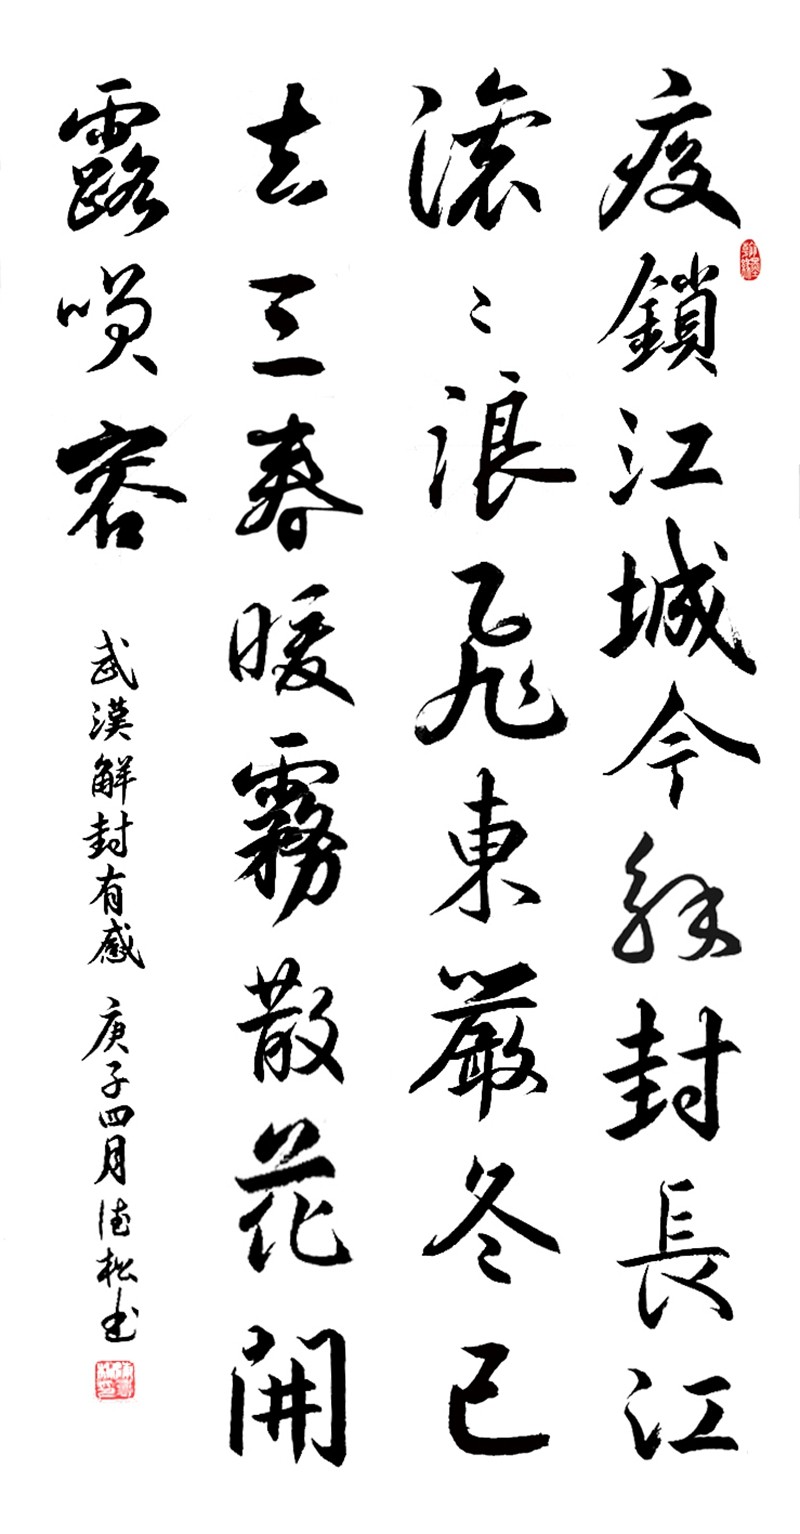 疫鎖江城今解封長江
滾〻浪飛東嚴冬已
去三春暖霧散花開
露咲容
武漢解封有感 庚子四月德松书